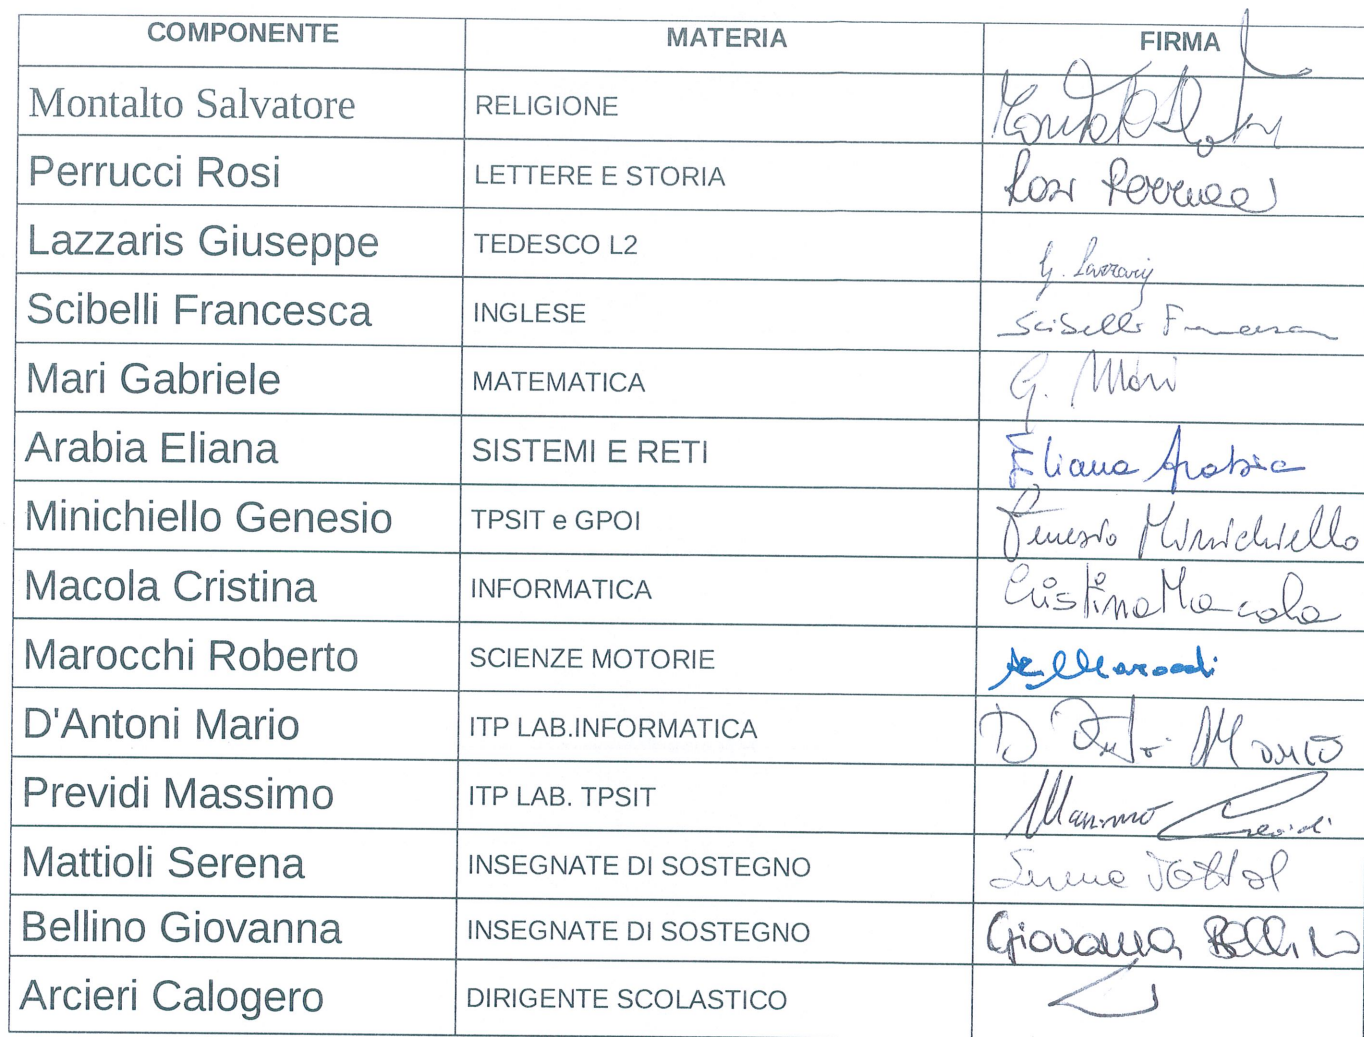 COMPONENTE MATERIA FIRMA
Montalto Salvatore RELIGIONE
Perrucci Rosi LETTERE E STORIA Rosi Perrucci
Lazzaris Giuseppe TEDESCO L2 G. Lazzaris
Scibelli Francesca INGLESE Scibelli Francesca
Mari Gabriele MATEMATICA G. Mari
Arabia Eliana SISTEMI E RETI Eliana Arabia
Minichiello Genesio TPSIT e GPOI Genesio Minichiello
Macola Cristina INFORMATICA Cristina Macola
Marocchi Roberto SCIENZE MOTORIE Marocchi
D'Antoni Mario ITP LAB.INFORMATICA D'Antoni Mario
Previdi Massimo ITP LAB. TPSIT Massimo Previdi
Mattioli Serena INSEGNATE DI SOSTEGNO Serena
Bellino Giovanna INSEGNATE DI SOSTEGNO Giovanna Bellino
Arcieri Calogero DIRIGENTE SCOLASTICO